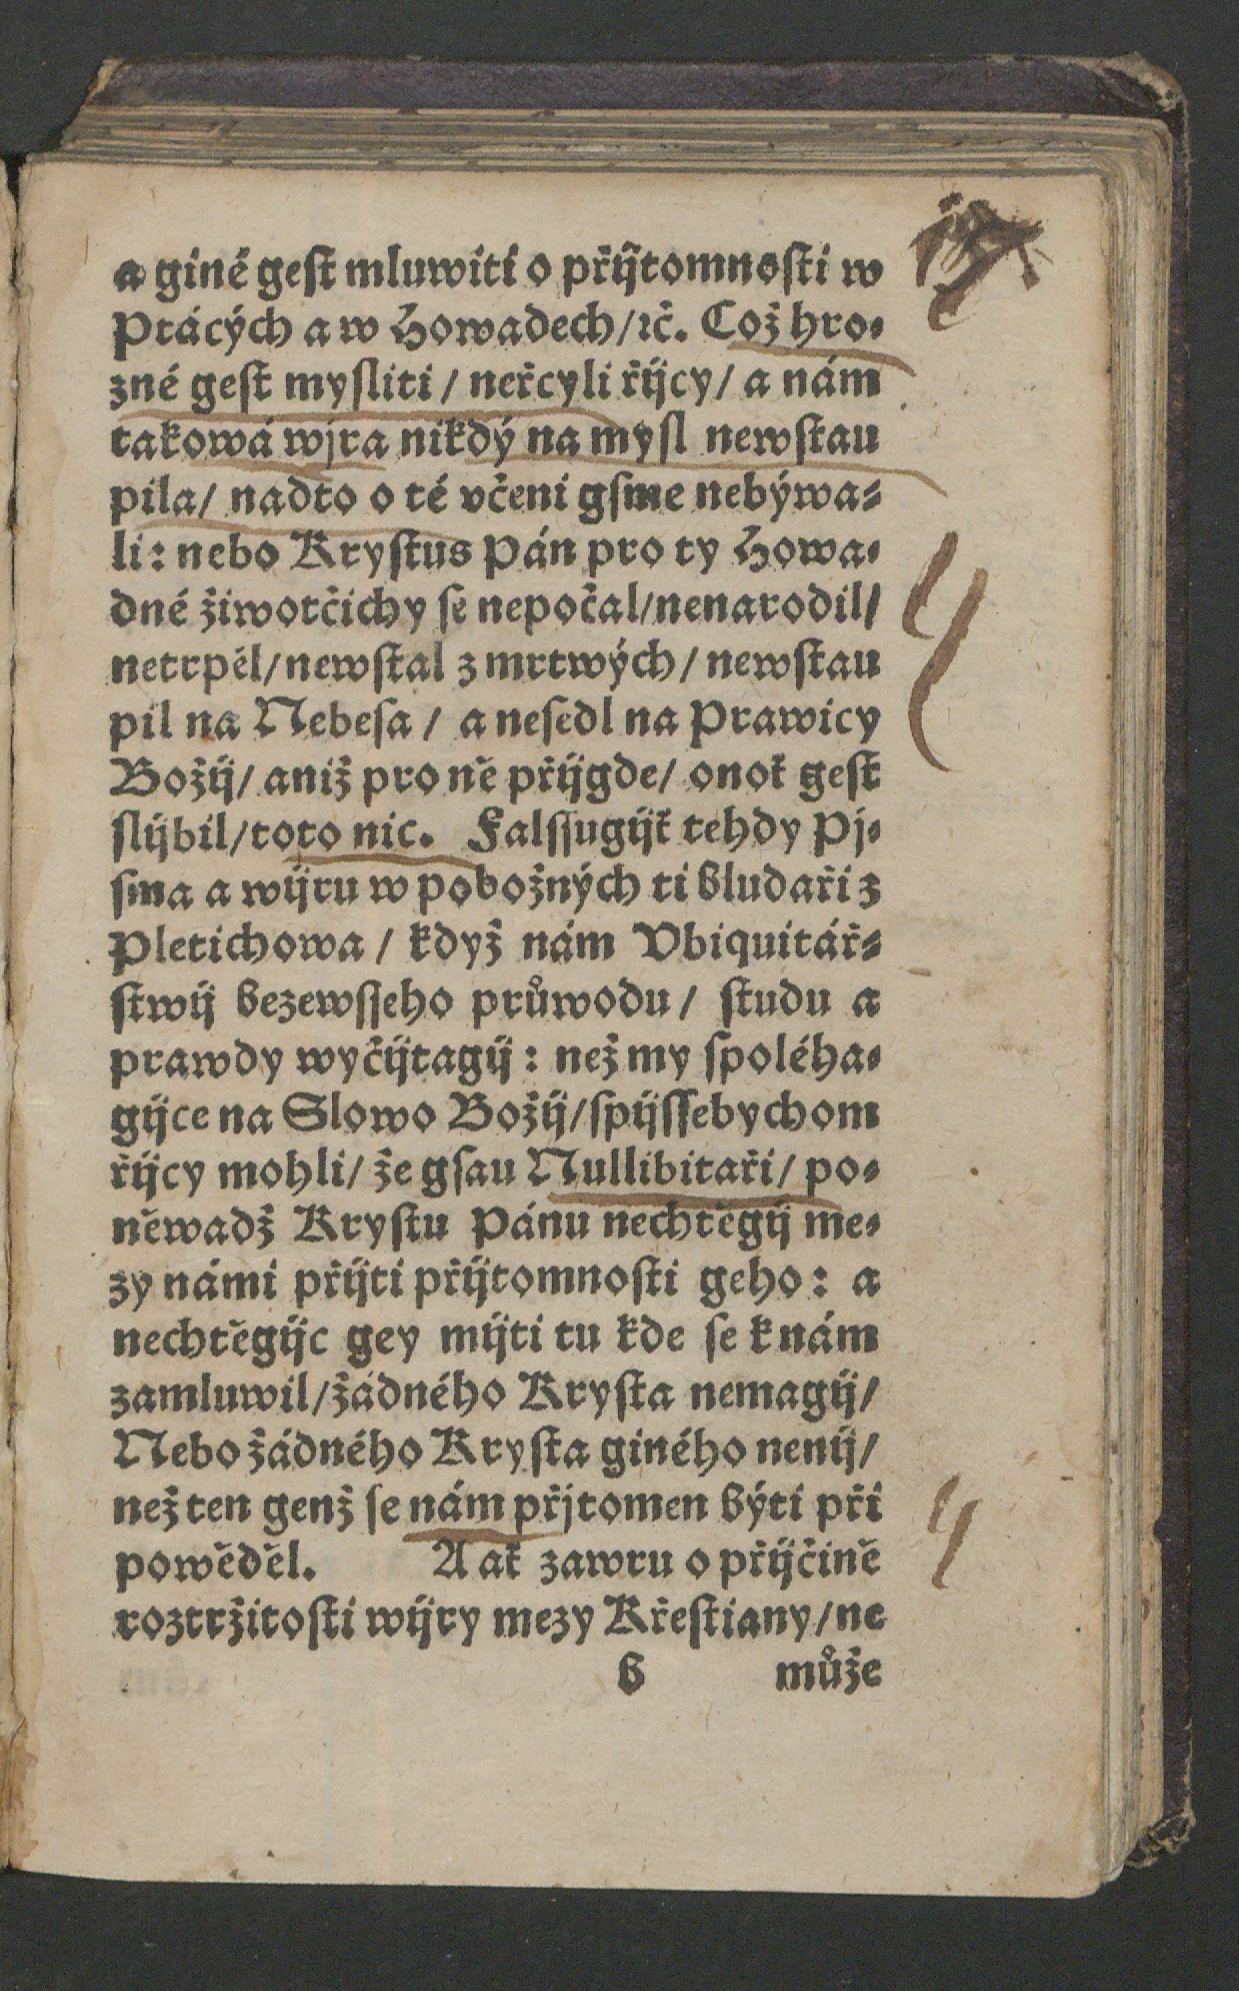 a giné geſt mluwiti o přijtomnoſti w
Ptácých a w Howadech/ ꝛč. Což hro-
zné geſt mysliti / neřcyli řijcy/ a nám
takowá wjra nikdý na mysl newſtau
pila/ nadto o té včeni gſme nebýwa-
li: nebo Kryſtus Pán pro ty Howa-
dné žiwotčichy ſe nepočal/ nenarodil/
netrpěl/ newſtal z mrtwých/ newſtau
pil na Nebeſa / a neſedl na Prawicy
Božij/ aniž pro ně přijgde/ onoť geſt
slijbil/ toto nic. Falſſugijť tehdy Pj-
ſma a wijru w pobožných ti bludaři z
Pletichowa / když nám Vbiquitář-
ſtwij bezewſſeho průwodu/ ſtudu a
prawdy wyčijtagij: než my ſpoléha-
gijce na Slowo Božij/ ſpijſſebychom
řijcy mohli/ že gſau Nullibitaři/ po-
něwadž Kryſtu Pánu nechtěgij me-
zy námi přijti přijtomnoſti geho: a
nechtěgijc gey mijti tu kde ſe k nám
zamluwil/ žádného Kryſta nemagij/
Nebo žádného Kryſta giného nenij/
než ten genž ſe nám přjtomen býti při
powěděl. A ať zawru o přijčině
roztržitoſti wijry mezy Křeſtiany/ ne
b může